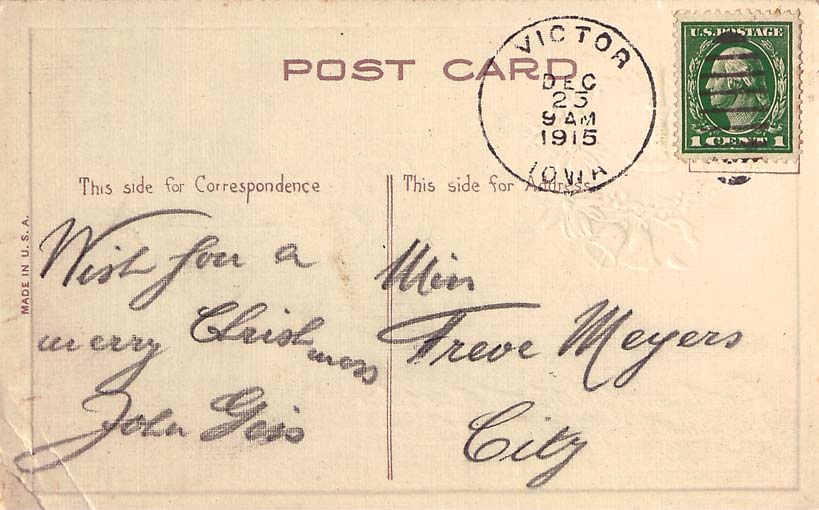 POST CARD
VICTOR
DEC
23
9 AM
1915
IOWA
U.S. POSTAGE
1 CENT 1
This side for Correspondence
This side for Address
MADE IN U. S. A.
Wish you a
merry Christ
mass
John
Treve Meyers
City